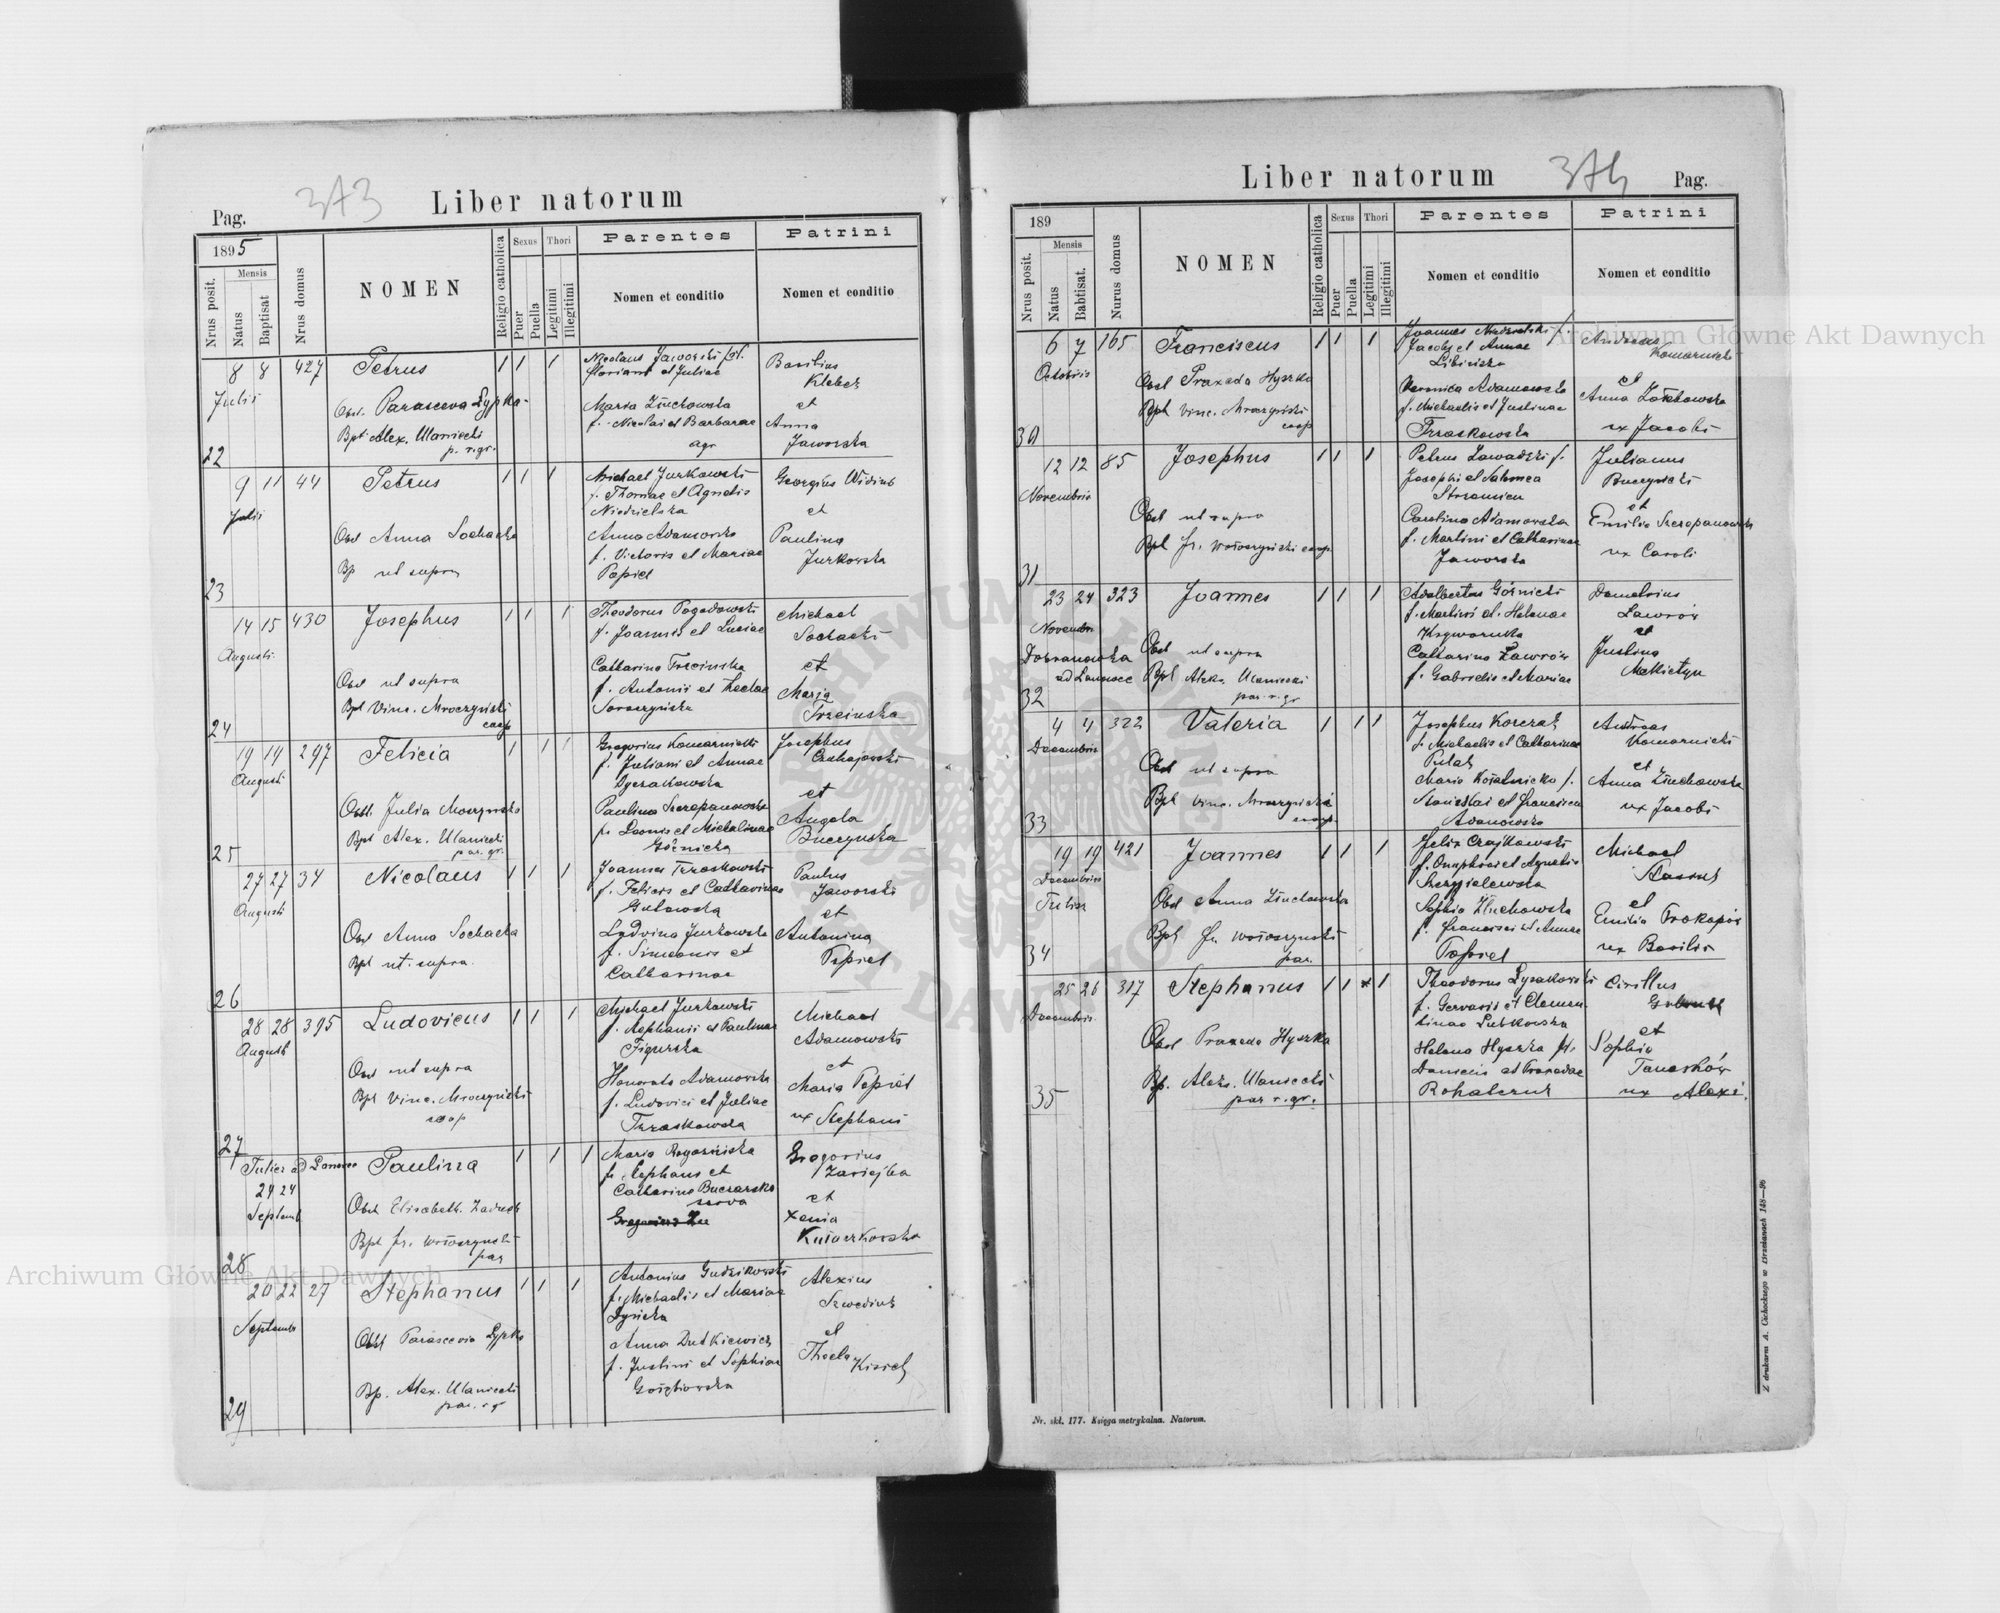 373
Liber natorum
Pag.
1895
Nrus posit.
Mensis
Natus
Baptisat
Nrus domus
NOMEN
Religio catholica
Sexus
Puer
Puella
Thori
Legitimi
Illegitimi
Parentes
Nomen et conditio
Patrini
Nomen et conditio
8 8 427 Petrus 1 1 1
Julii
Nicolaus Jaworski
Floriani et Juliae
Basilius
Klebek
et
Obst. Parasceva Lypka
Maria Żłuchowska
f. Nicolai et Barbarae
agr
Anna
Jaworska
Bpt Alex. Ulaniecki
p. r. gr.
22
9 11 44 Petrus 1 1 1
Julii
Michael Jurkowski
f. Thomae et Agnetis
Niedzielska
Georgius Widiuk
et
Obst Anna Sochacka
Anna Adamowska
f. Victoris et Mariae
Popiel
Paulina
Jurkowska
Bp ut supra
23
14 15 430 Josephus 1 1 1
Augusti
Theodorus Pogodowski
f. Joannis et Luciae
Michael
Sochacki
et
Obst ut supra
Catharina Trzcinska
f. Antonii et Theclae
Soroczyńska
Maria
Trzcinska
Bpt Vinc. Mroczyński
coop
24
19 19 297 Felicia 1 1 1
Augusti
Gregorius Komarnicki
f. Juliani et Annae
Dyczakowska
Josephus
Czahajowski
et
Obst Julia Moczynska
Paulina Szczepanowska
f. Leonis et Michalinae
Górnicka
Angela
Buczynska
Bpt Alex. Ulaniecki
par. gr.
25
27 27 34 Nicolaus 1 1 1
Augusti
Joannes Trzaskowski
f. Felicis et Catharinae
Gutowska
Paulus
Jaworski
et
Obst Anna Sochacka
Ludvina Jurkowska
f. Simeonis et
Catharinae
Antonina
Popiel
Bpt ut supra
26
28 28 395 Ludovicus 1 1 1
Augusti
Michael Jurkowski
f. Stephanii et Paulinae
Figurska
Michael
Adamowski
et
Obst ut supra
Honorata Adamowska
f. Ludovici et Juliae
Trzaskowska
Maria Popiel
ux Stephani
Bpt Vinc. Mroczyński
coop
27
Paulina 1 1 1
24 24
Septemb
Maria
f. Stephani et
Gregorius
Zariejka
et
Xenia
Obst Elisabeth
Bpt Fr. Wołoszynski
par
28
20 22 27 Stephanus 1 1 1
Septembr
Antonius Gudzikowski
f. Michaelis et Mariae
Dynicka
Alexius
Szwediuk
et
Obst Parascevia Lypka
Anna Dutkiewicz
f. Justini et Sophiae
Gołębiowska
Thecla
Kisiel
Bp. Alex. Ulaniecki
par. r. gr
29
Liber natorum
374
Pag.
189
Nrus posit.
Mensis
Natus
Babtisat.
Nurus domus
NOMEN
Religio catholica
Sexus
Puer
Puella
Thori
Legitimi
Illegitimi
Parentes
Nomen et conditio
Patrini
Nomen et conditio
6 7 165 Franciscus 1 1 1
Octobris
Joannes Niedzielski f.
Jacobi et Annae
Libińska
Andreas
Komarnicki
et
Obst Praxeda Hyszka
Veronica Adamowska
f. Michaelis et Justinae
Trzaskowska
Anna
ux Jacobi
Bpt Vinc. Mroczyński
coop
30
12 12 85 Josephus 1 1 1
Novembris
Petrus Zawadzki f.
Josephi et Salomea
Julianus
Buczynski
et
Obst ut supra
Carolina Adamowska
f. Martini et Catharinae
Jaworska
Emilia Szczepanowska
ux Caroli
Bpt Fr. Wołoszynski coop
31
23 24 323 Joannes 1 1 1
Novembr
Adalbertus Górnicki
f. Martini et Helenae
Krywonuka
Demetrius
Lawrów
et
Dobranowka
Obst ut supra
Catharina Lawrów
f. Gabrielis et Mariae
Justina
Mekietyn
Bpt Alex. Ulaniecki
par r. gr
32
4 4 322 Valeria 1 1 1
Decembris
Josephus Korczak
f. Michaelis et Catharinae
Pulak
Andreas
Komarnicki
et
Obst ut supra
Anna Żłuchowska
ux Jacobi
Stanislai et Francisca
Adamowska
Bpt Vinc. Mroczyński
coop
33
19 19 421 Joannes 1 1 1
Decembris
Felix Czajkowski
f. Onuphrii et Agnetis
Michael
et
Obst Anna Żłuchowska
Sophia Żłuchowska
f. Francisci et Annae
Popiel
Emilia Prokopów
ux Basilii
Bpt Fr Wołoszynski
par.
34
25 26 317 Stephanus 1 1 1
Decembris
Theodorus Lysakowski
f. Gervasii et Clemen
tinae Lutkowska
Cirillus
et
Obst Praxeda Hyszka
Helena Hyszka f.
Danielis et Praxedae
Rohaleruk
Sophia
Tanasków
ux Alexi.
Bp. Aleks. Ulaniecki
par r. gr.
35
Nr. skł. 177. Księga metrykalna. Natorum.
Z drukarni A. Cichockiego w Strzeliskach 148—96
Archiwum Główne Akt Dawnych
Archiwum Główne Akt Dawnych
ARCHIWUM GŁÓWNE AKT DAWNYCH